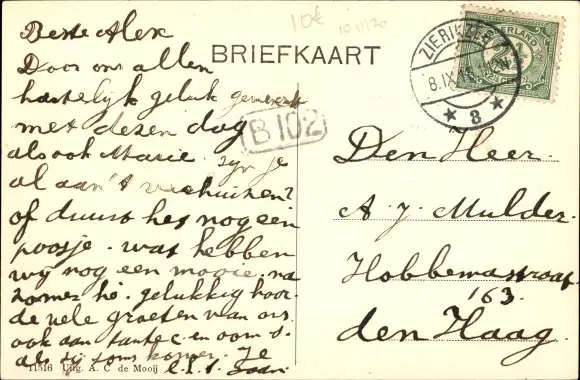 Beste Alex
Door ons allen
hartelijk geluk gewenscht
met dezen dag
alsook Marie. zyn je
al aan't verhuizen?
of duurt het nog een
poosje. wat hebben
wij nog een mooie na
zomer hè. gelukkig hoor.
de vele groeten van ons
ook aan tante C. en oom
als zij soms komen. Je
11516 Uitg. A. C. de Mooij
10€
10/11/20
BRIEFKAART
B 102
ZIERIKZEE
8.IX
3
NEDERLAND
Den Heer
A. J. Mulder.
Hobbemastraat
163.
den Haag.